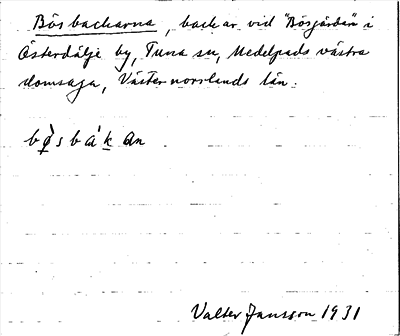 Bösbackarna, backar vid "Bösgården" i
Österdälje by, Tuna sn, Medelpads västra
domsaga, Västernorrlands län.
bø̀sbák̠an
Valter Jansson 1931